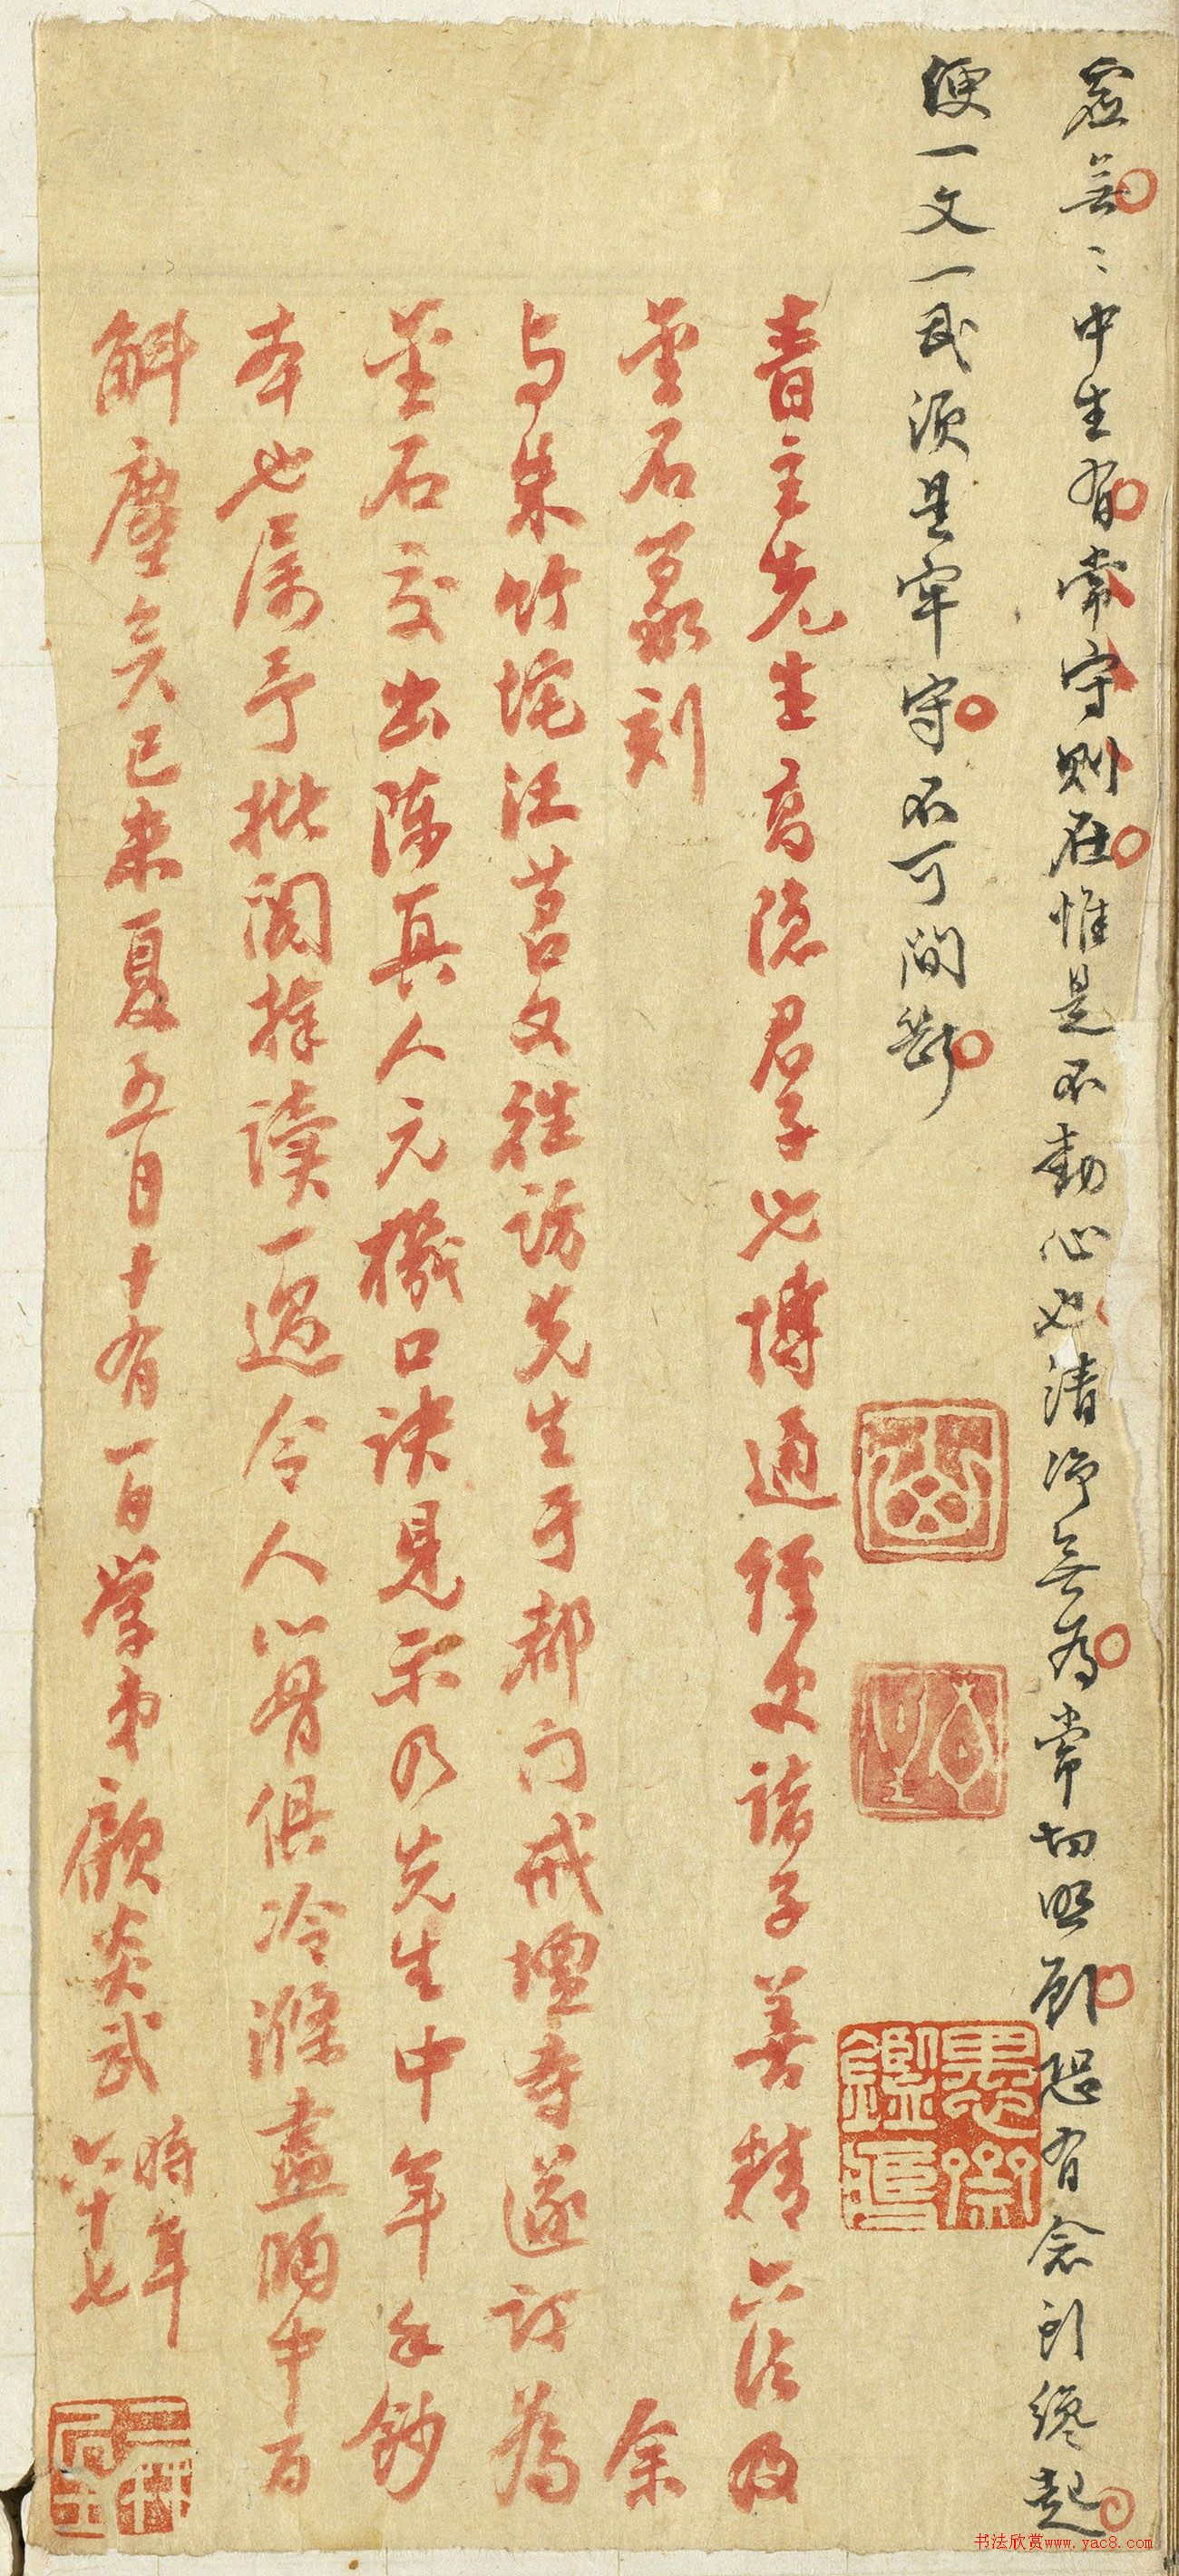 虛無〻中生有常守則在惟是不動心也清净無為常切照顧恐有念到纔起
便一文一武須是牢守不可間斷
青主先生高隱君子也博通經史諸子善精六法及
金石篆刻
余
与朱竹垞汪苕文往访先生于都门戒壇寺遂订為
金石交出陈真人元機口诀見示乃先生中年手鈔
本也属予批阅捧讀一過令人心骨俱冷滌盡胸中百
斛塵矣己未夏五月十有一日學弟顧炎武
時年
六十七
书法欣赏www.yac8.com